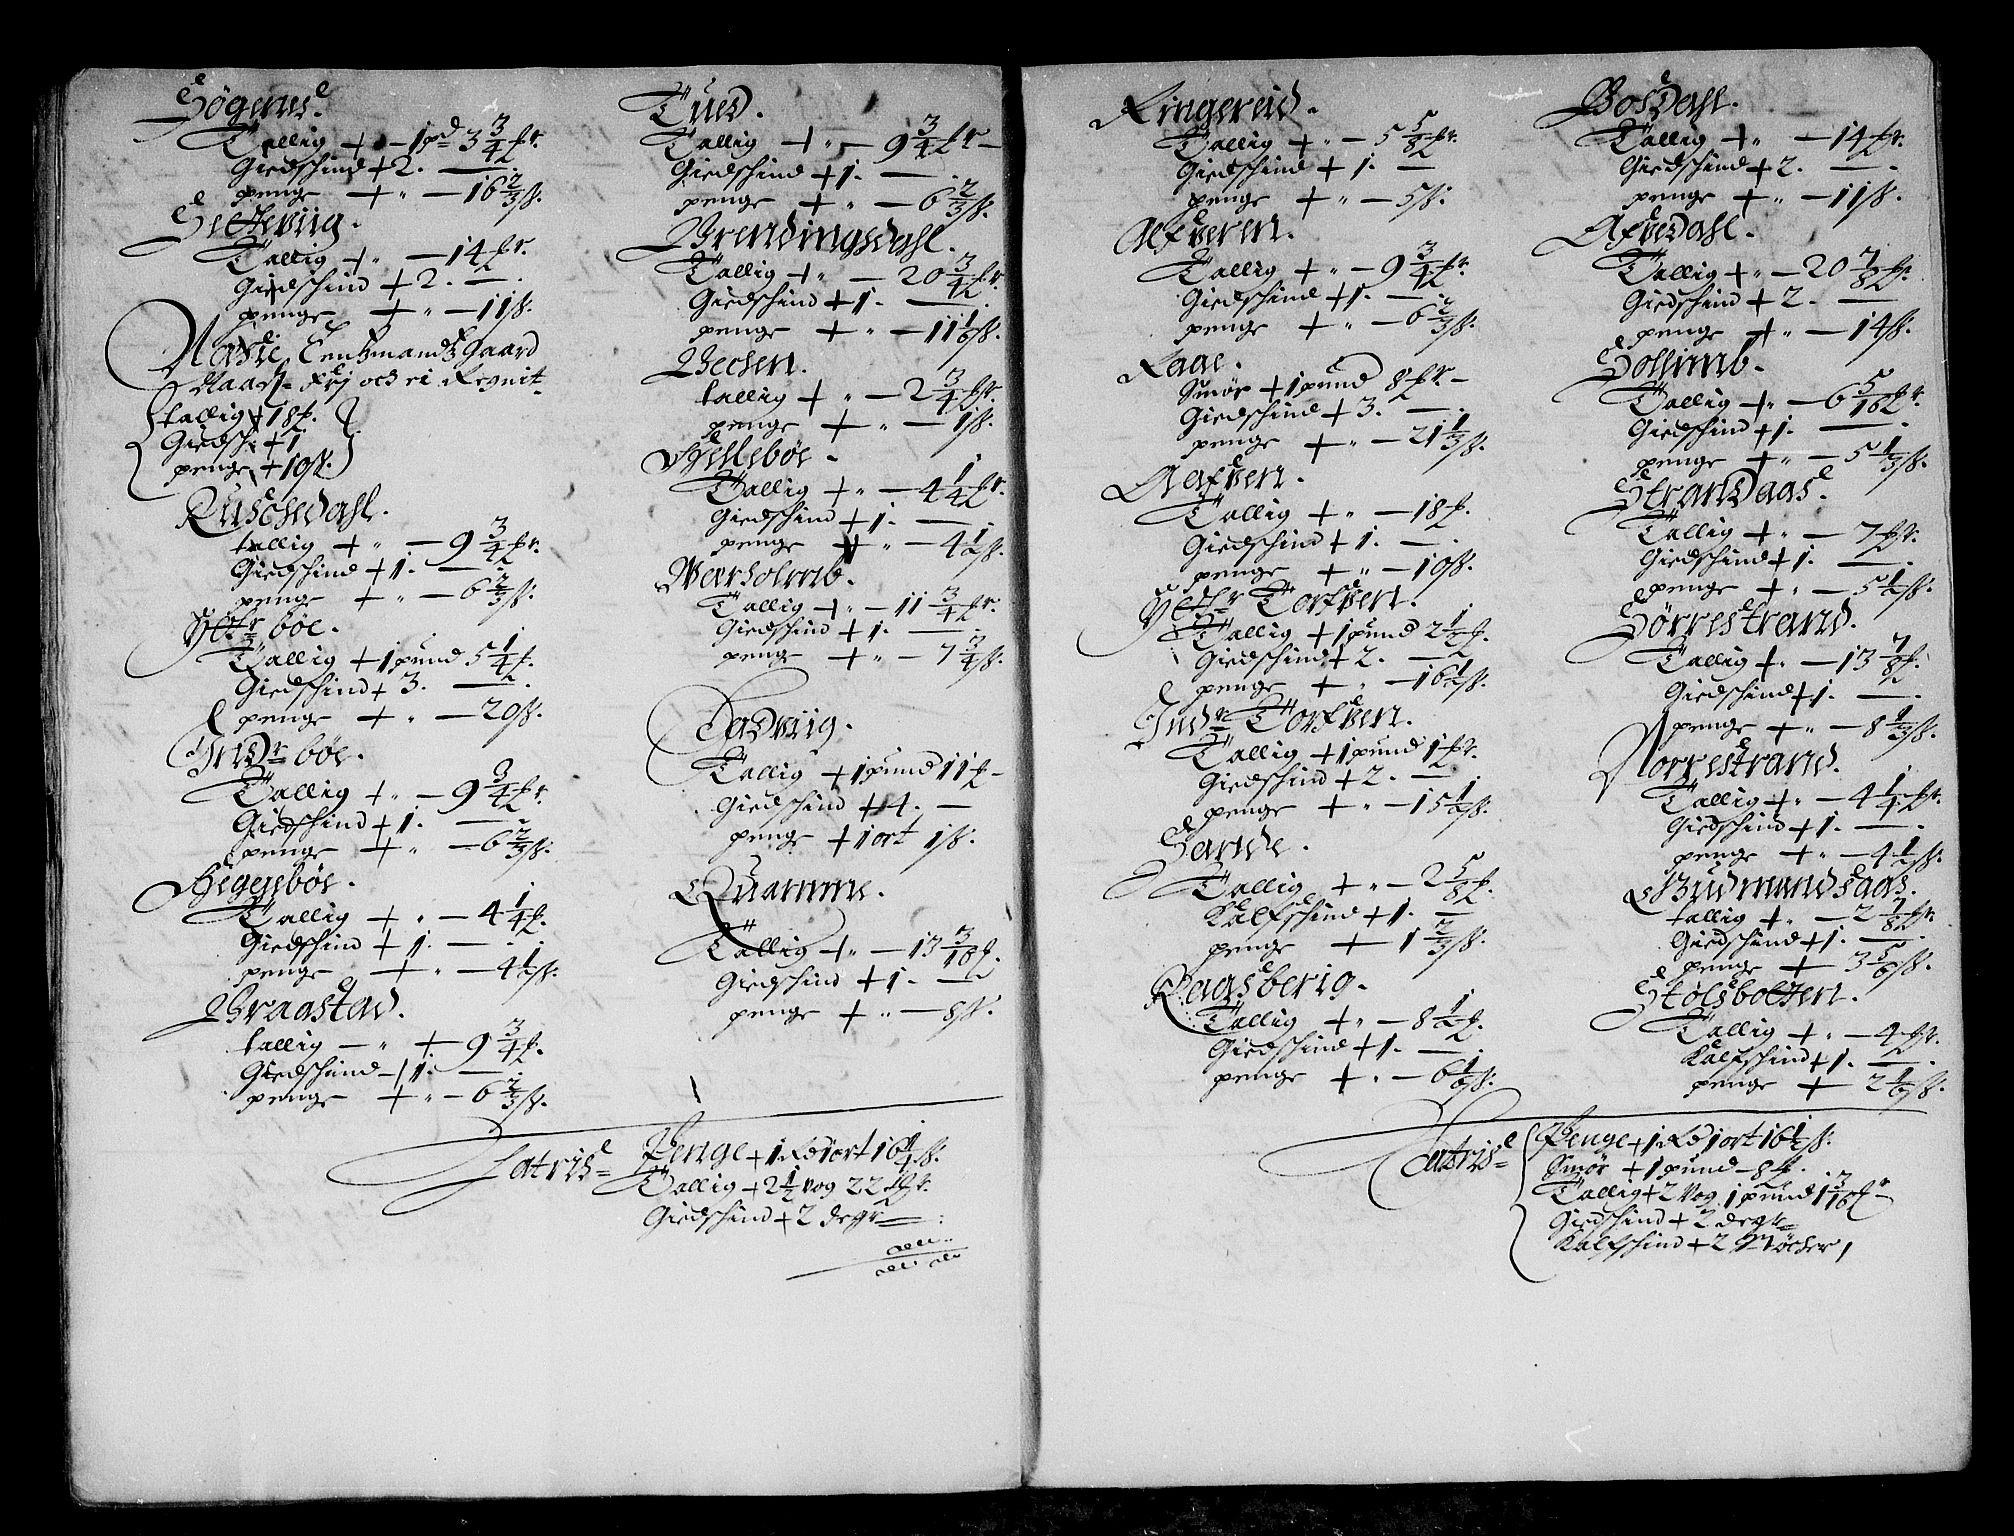 Søgenes
Tallig + – 1 pd 3 3/4 ℔r.
Giedschind + 2. —
penge + „ – 16 2/3 ß.
Setteviig.
Tallig + „ – 14 ℔r.
Giedschind + 2. —
penge + „ – 11 ß.
Naase Lentzmandtz Gaard
Naars frj och ei Regnit
tallig + 18 ℔.
Giedsch + 1
penge + 10 ß.
Ruschedahl.
tallig + „ – 9 3/4 ℔r.
Giedschind + 1. —
penge + „ – 6 2/3 ß.
Yttr bøe.
Tallig + 1 pund 5 1/4 ℔.
Giedschind + 3. —
penge + „ – 20 ß.
Indr bøe.
Tallig + „ – 9 3/4 ℔r.
Giedschind + 1. —
penge + „ – 6 2/3 ß.
Heggebøe.
Tallig + „ – 4 1/4 ℔.
Giedschind + 1. —
penge + „ – 4 1/2 ß.
Braastad.
tallig – „ + 9 3/4 ℔.
Giedschind – 1. —
penge + „ – 6 2/3 ß.
Tued.
Tallig + „ – 9 3/4 ℔r –
Giedschind + 1. —
penge + „ – 6 2/3 ß.
Brendingsdahl.
Tallig + „ – 20 3/4 ℔r.
Giedschind + 1. —
penge + „ – 11 1/6 ß.
Bechen.
tallig + „ – 2 3/4 ℔r.
penge + „ – 1 ß.
Hellebøe.
Tallig + „ – 4 1/4 ℔r.
Giedschind + 1. —
penge + „ – 4 1/2 ß.
Warholmb.
Tallig + „ – 11 3/4 ℔r.
Giedschind + 1. —
penge + „ – 7 3/4 ß.
Ladviig.
Tallig + 1 pund 11 ℔ –
Giedschind + 4. —
penge + 1 ort 1 ß.
Quamme.
Tallig + „ – 13 3/16 ℔.
Giedschind + 1. —
penge + „ – 8 ß.
Latris
Penge + 1 Rd 1 ort 16 1/4 ß.
Tallig + 2 1/2 vog 22 ℔r.
Giedschind + 2 degr —
Ringereid.
Tallig + „ – 5 5/8 ℔r.
Giedschind + 1. —
penge + „ – 5 ß.
Alfveren.
Tallig + „ – 9 3/4 ℔r.
Giedschind + 1. —
penge + „ – 6 2/3 ß.
Raae.
Smør + 1 pund 8 ℔r –
Giedschind + 3. —
penge + „ – 21 1/3 ß.
Aafven.
Tallig + „ – 18 ℔.
Giedschind + 1. —
penge + „ – 10 ß.
Yttr Torfven.
Tallig + 1 pund 2 1/2 ℔.
Giedschind + 2. —
penge + „ – 16 1/2 ß.
Indr Torfven.
Tallig + 1 pund 1 ℔r.
Giedschind + 2. —
penge + „ – 15 1/6 ß.
Sande.
Tallig + „ – 2 5/8 ℔.
Kalfschind + 1. —
penge + 1 2/3 ß.
Raasberig.
Tallig + „ – 8 1/2 ℔.
Giedschind + 1. —
penge + „ – 6 1/6 ß.
Bosdahl.
Tallig + „ – 14 ℔r.
Giedschind + 2. —
penge + „ – 11 ß.
Afvedahl.
Tallig + „ – 20 7/8 ℔r.
Giedschind + 2. —
penge + „ – 14 ß.
Sollimb.
Tallig + „ – 6 5/16 ℔r.
Giedschind + 1. —
penge + „ – 5 1/3 ß.
Strandaas.
Tallig + „ – 7 ℔r.
Giedschind + 1. —
penge + „ – 5 1/2 ß.
Sørrestrand.
Tallig + „ – 13 7/8 ℔.
Giedschind + 1. —
penge + „ – 8 1/3 ß.
Norrestrand.
Tallig + „ – 4 1/4 ℔r.
Giedschind + 1. —
penge + „ – 4 1/2 ß.
Gudmundsaas.
tallig + „ – 2 7/8 ℔r.
Giedschind + 1. —
penge + 3 5/6 ß.
Stølsbotten.
Tallig + „ – 4 ℔r.
Kalfschind + 1. —
penge + 2 1/6 ß.
Latris
Penge + 1 Rd 1 ort 16 1/2 ß.
Smør + 1 pund – 8 ℔.
Tallig + 2 Vog 1 pund 1 3/16 ℔r –
Giedschind + 2 degr
Kalfschind + 2 støcher /